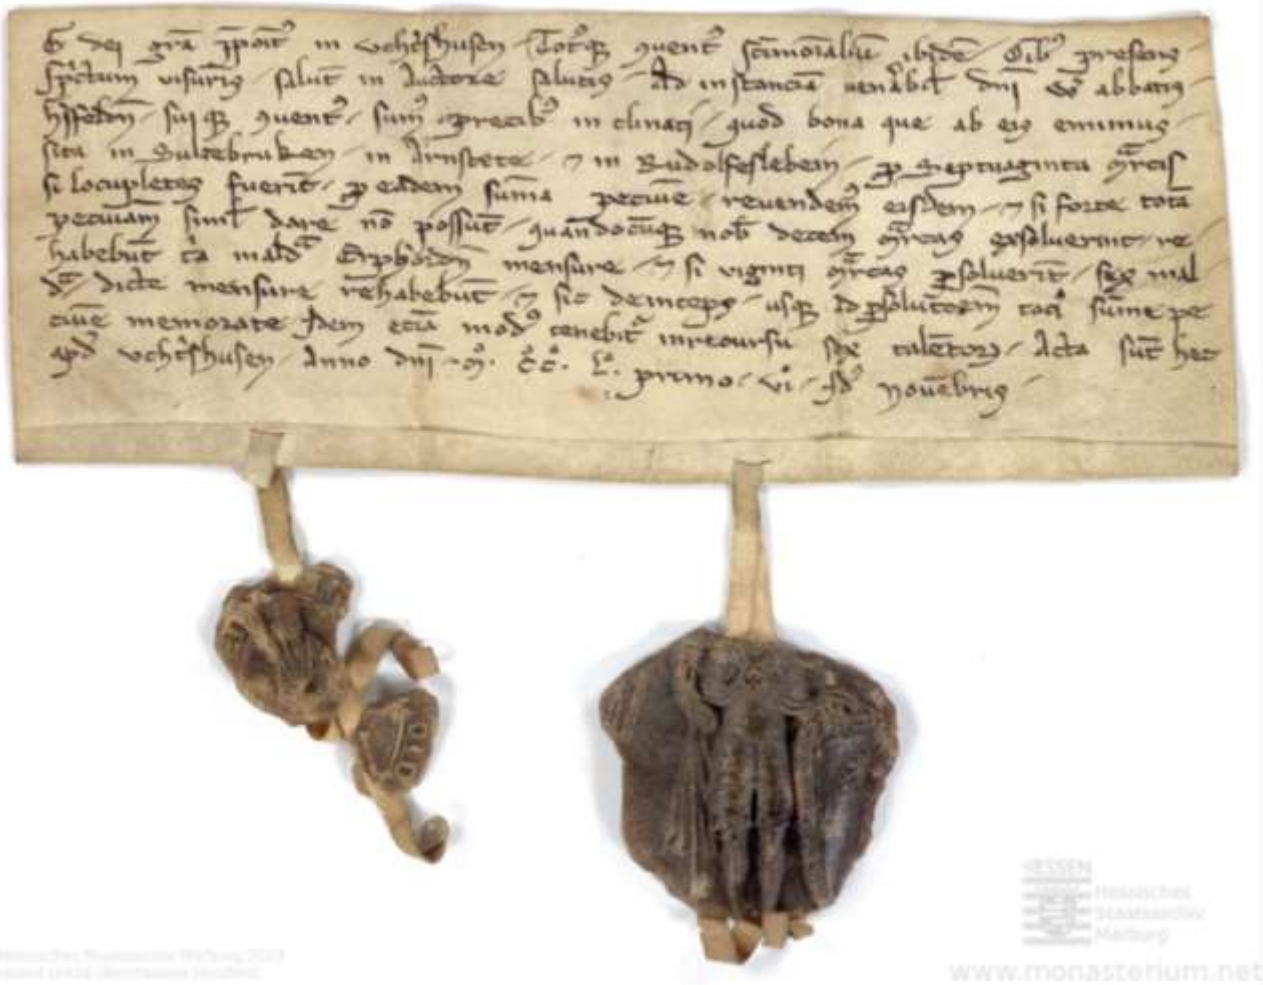 G dei grā p̄poit9 in vchtʼshusen Totꝰqꝫ ɔuentꝰ sc̄imonialiū ibidē Oībꝰ presens
sc̄ptum visuris salut̄ in Auctore salutis Ad instanciā uenʼabil dn̄i W abbatis
hʼsfeldn̄ sui qꝫ ɔuentꝰ sumꝰ precibꝰ inclinati quod bona que ab eis emimus
sita in Sulcebruken in Arnstete ⁊ in Rudolfesleben ꝓ Septuaginta mʼrcis
si locupletes fuerīt ꝓ eadem sūma pecūie reuendemꝰ eisdem ⁊ si forte totā
pecuniam simul dare nō possūt quandocūqꝫ nob̄ decem mʼrcas exsoluerint re
habebūt tʼa maldʼa Erphordn̄ mensure ⁊ si viginti mʼrcas ꝑsoluerīt sex mal
dʼa dicte mensure rehabebūt ⁊ sic deinceps usqꝫ ad ꝑsolutōem tociꝰ sūme pe
cūie memorate Idem eciā modꝰ tenebitʼ in recursu sex talētoꝝ Acta sūt hec
apdʼ vchtʼshusen Anno dn̄i mͦ. cͦcͦ. lͦ. primo viͦ Idꝰ Nouēbris
Hessisches Staatsarchiv Marburg 2023
HESSEN
Hessisches
Staatsarchiv
Marburg
www.monasterium.net